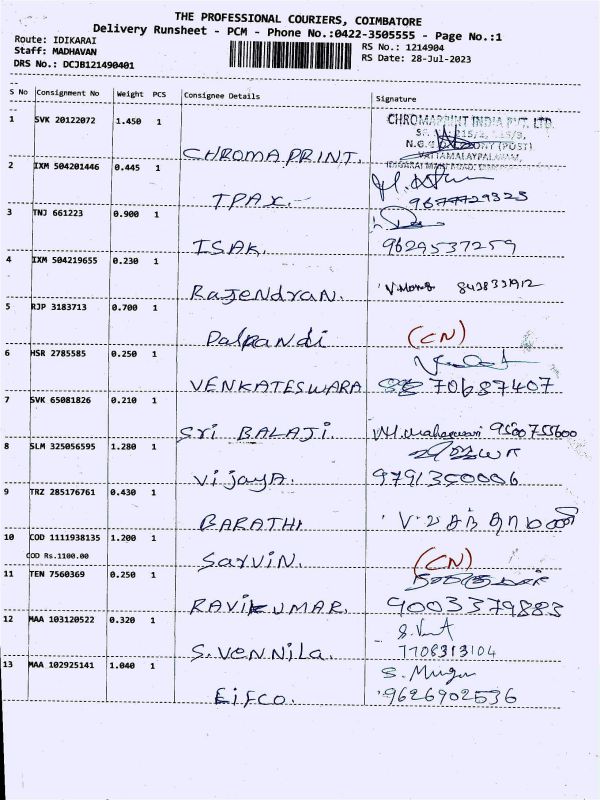 THE PROFESSIONAL COURIERS, COIMBATORE
Delivery Runsheet - PCM - Phone No.:0422-3505555 - Page No.:1
Route: IDIKARAI
Staff: MADHAVAN
DRS No.: DCJB121490401
RS No.: 1214904
RS Date: 28-Jul-2023
S No Consignment No Weight PCS Consignee Details Signature
1 SVK 20122072 1.450 1 CHROMAPRINT.
CHROMAPRINT INDIA PVT. LTD.
2 IXM 504201446 0.445 1 TPAX.-
3 TNJ 661223 0.900 1 ISAK. 9629537259
4 IXM 504219655 0.230 1 Rajendran.
5 RJP 3183713 0.700 1 Palpandi (CN)
6 HSR 2785585 0.250 1 VENKATESWARA 70687407
7 SVK 65081826 0.210 1 Sri BALAJI.
8 SLM 325056595 1.280 1 VijayA.
9 TRZ 285176761 0.430 1 BARATHI
10 COD 1111938135 1.200 1 Sarvin. (CN)
COD Rs.1100.00
11 TEN 7560369 0.250 1 RAVIKUMAR. 9003379883
12 MAA 103120522 0.320 1 S.Vennila. 7708313104
13 MAA 102925141 1.040 1 Eifco. 9626902536